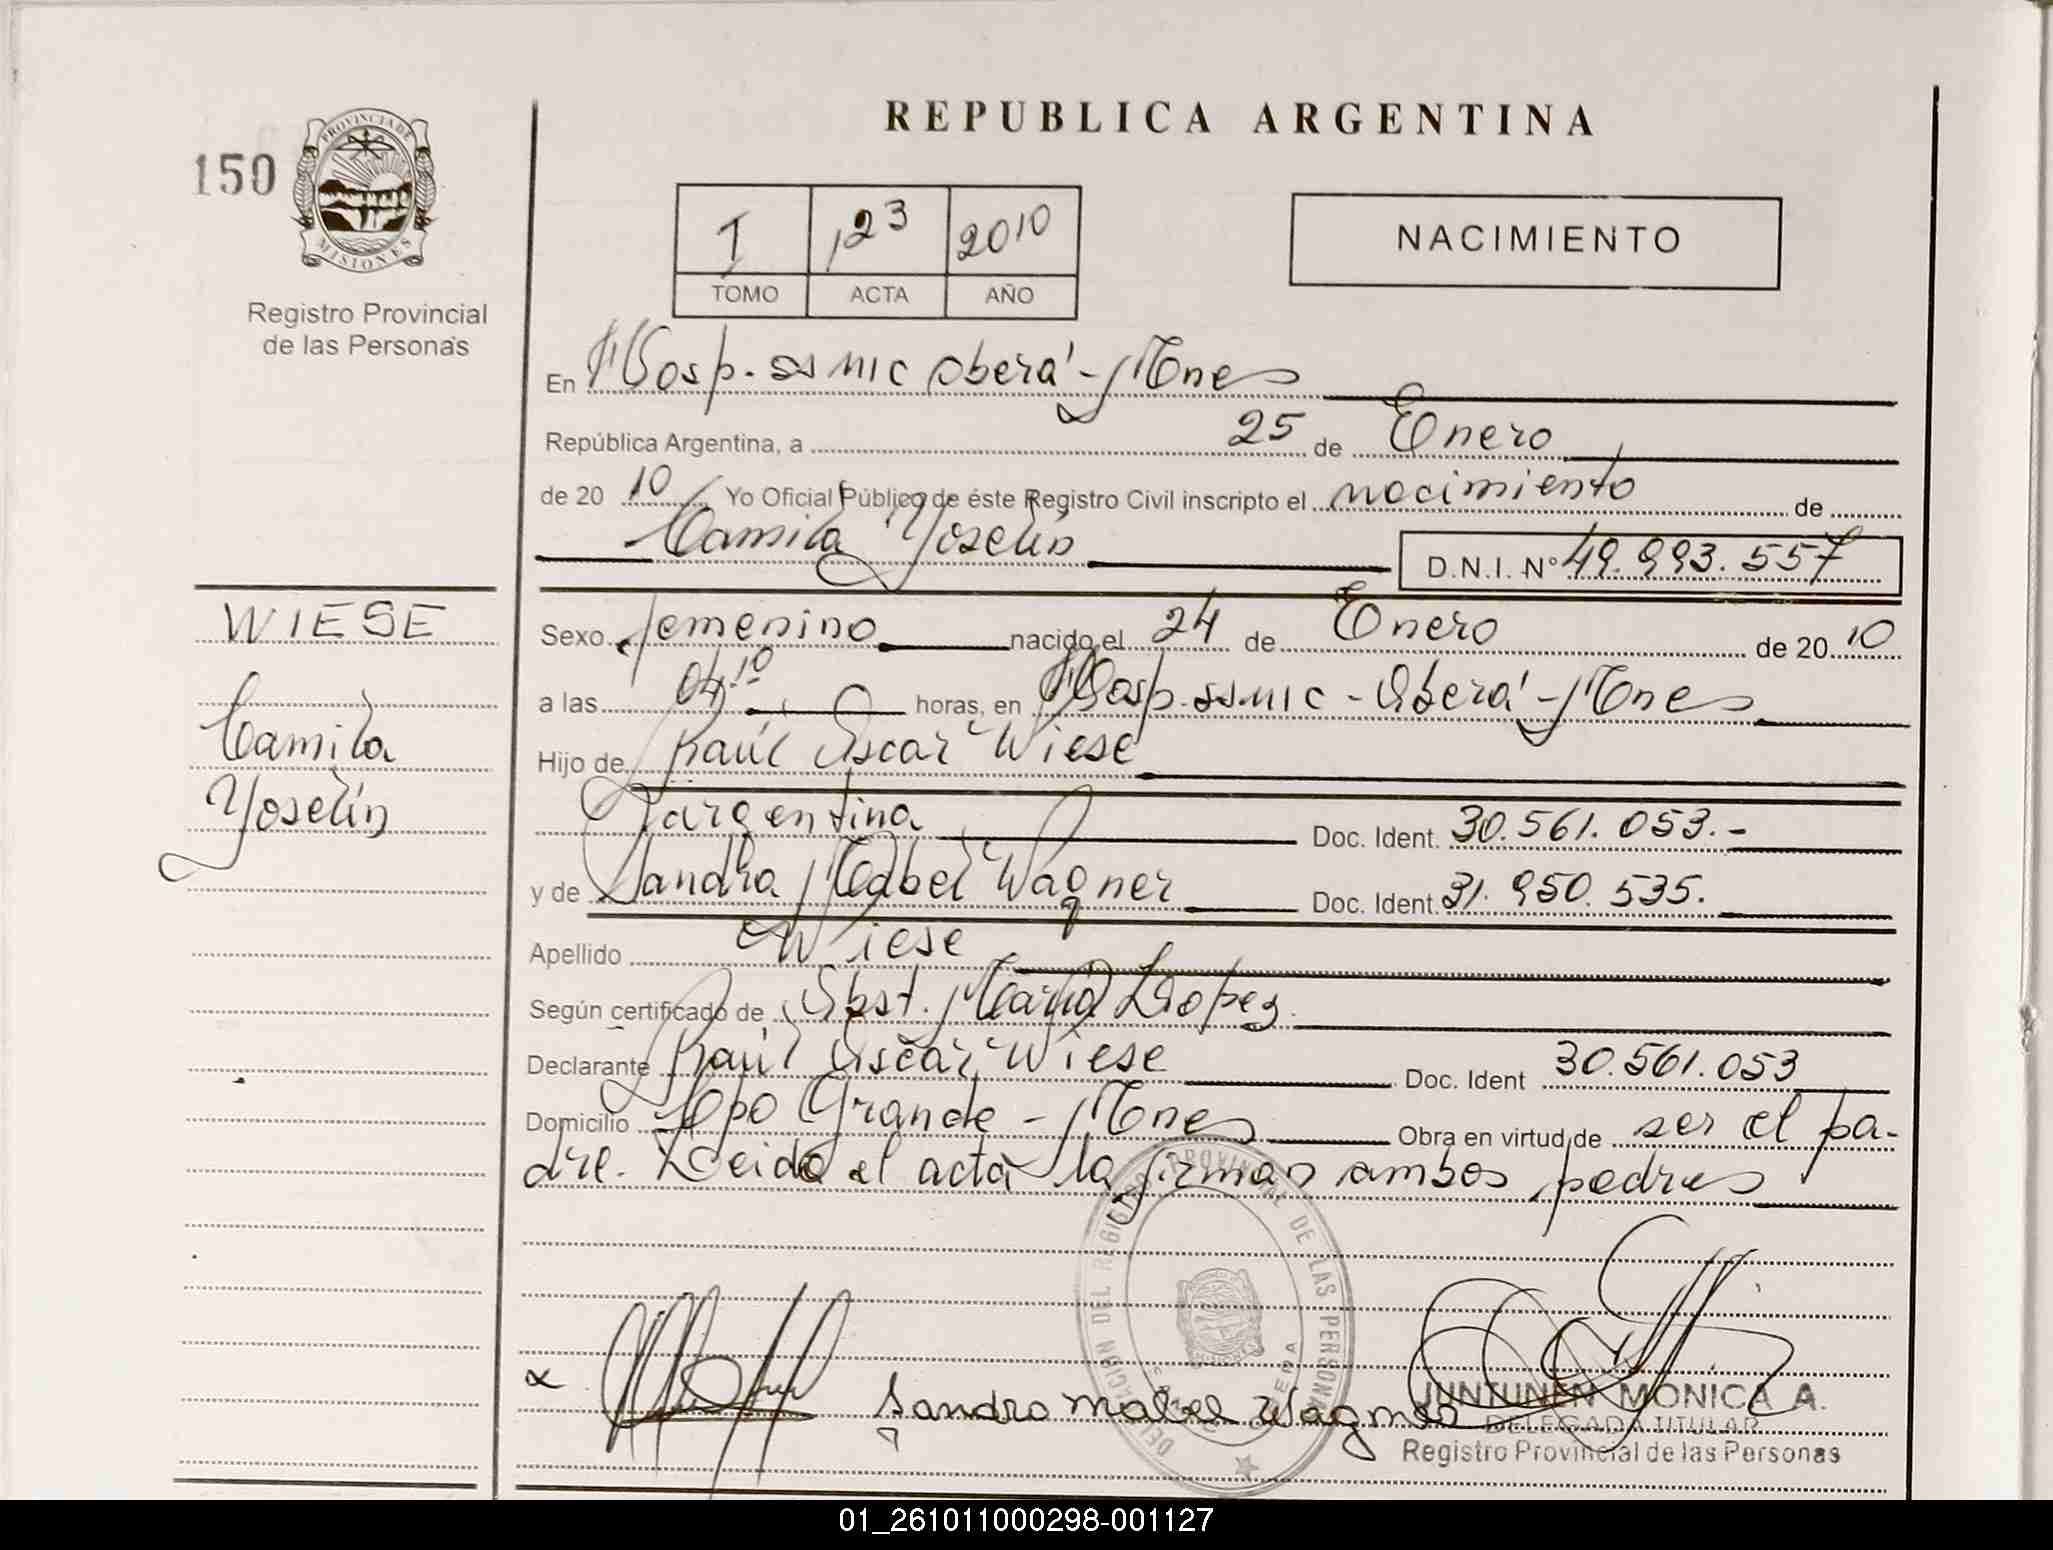 REPUBLICA ARGENTINA
150
PROVINCIA DE
MISIONES
Registro Provincial
de las Personas
I 123 2010
TOMO ACTA AÑO
NACIMIENTO
En Hosp. SSMIC Oberá - Mnes
República Argentina, a 25 de Enero
de 20 10 Yo Oficial Público de éste Registro Civil inscripto el nacimiento de
Camila Yoselin D.N.I. Nº 49.993.557
WIESE
Camila
Yoselin
Sexo femenino nacido el 24 de Enero de 20 10
a las 04.10 horas, en Hosp. SSMIC - Oberá - Mnes
Hijo de Raúl Oscar Wiese
argentina Doc. Ident. 30.561.053.-
y de Sandra Mabel Wagner Doc. Ident. 31.950.535.
Apellido Wiese
Según certificado de Obst. María Lopez
Declarante Raúl Oscar Wiese Doc. Ident 30.561.053
Domicilio Cpo Grande - Mnes Obra en virtud de ser el pa-
dre. Leida el acta la firman ambos padres
DELEGACION DEL REGISTRO PROVINCIAL DE LAS PERSONAS
OBERA
Sandra Mabel Wagner
JUNTUNEN MONICA A.
DELEGADA TITULAR
Registro Provincial de las Personas
01_261011000298-001127